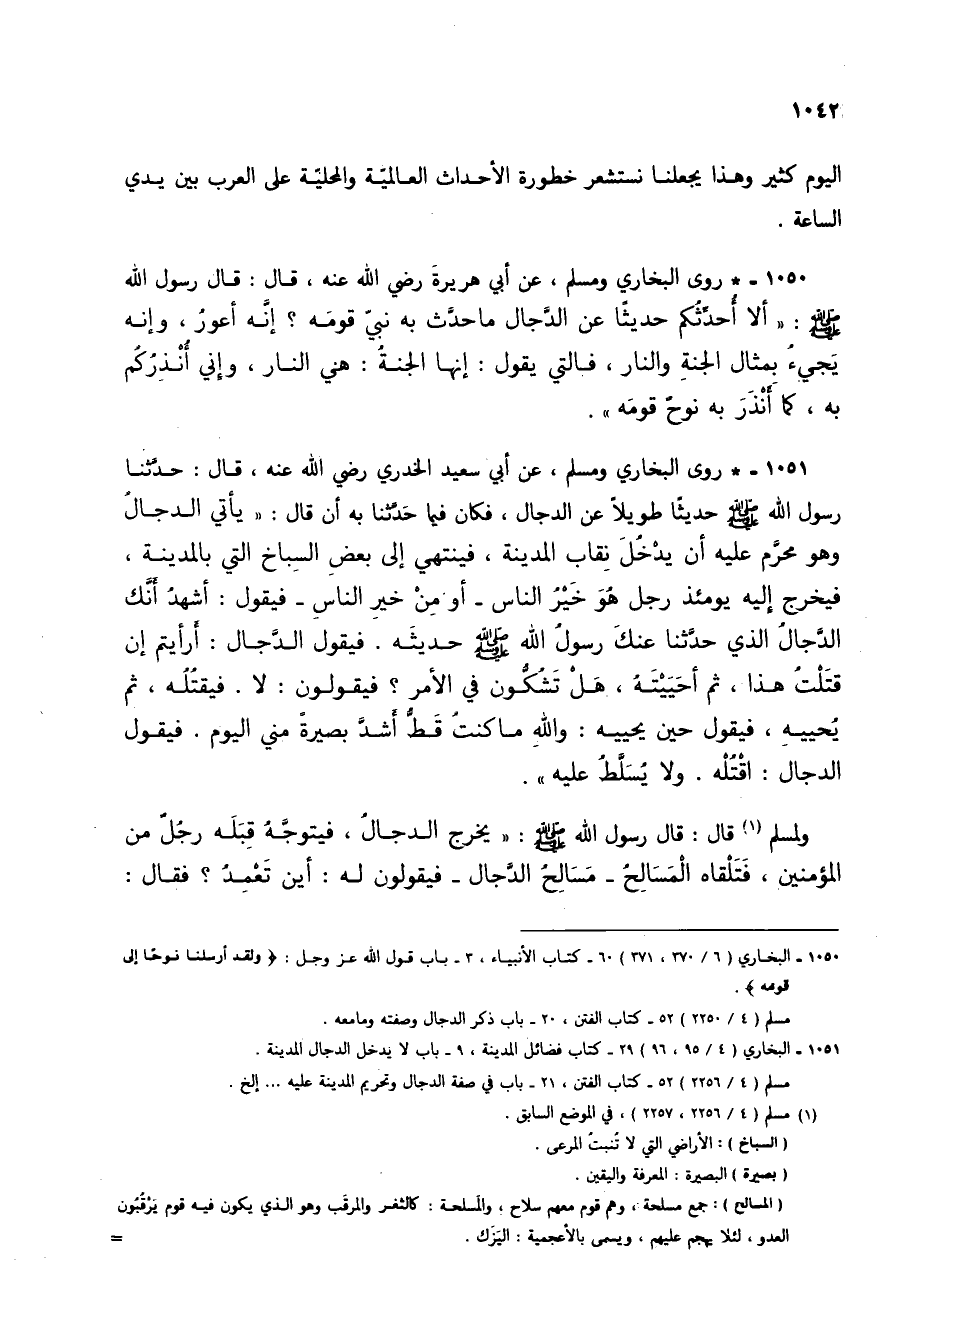 ١٠٤٢
اليوم كثير وهـذا يجعلنـا نستشعر خطورة الأحـداث العـالميّـة والمحليّـة على العرب بين يـدي
السـاعة .
١٠٥٠ - * روى البخاري ومسلم ، عن أبي هريرةَ رضي الله عنه ، قـال : قـال رسول الله
ﷺ : « ألا أُحدِّثُكم حديثًا عن الدَّجال ماحدَّث به نبيّ قومَـه ؟ إنَّـه أعورُ ، وإنـه
يَجيءُ بمثال الجنةِ والنار ، فـالتي يقول : إنهـا الجنـةُ : هي النـار ، وإني أُنْـذِرُكُم
به ، كما أَنْذَرَ به نوحٌ قومَه » .
١٠٥١ - * روى البخاري ومسلم ، عن أبي سعيد الخدري رضي الله عنه ، قـال : حـدَّثنـا
رسول الله ﷺ حديثًا طويلاً عن الدجال ، فكان فيما حَدَّثنا به أن قال : « يأتي الـدجـالُ
وهو محرَّم عليه أن يدْخُلَ نِقاب المدينة ، فينتهي إلى بعض السِباخ التي بالمدينـة ،
فيخرج إليه يومئذ رجل هُوَ خَيْرُ الناس ـ أو مِنْ خير الناسِ ـ فيقول : أشهدُ أنَّك
الدَّجالُ الذي حدَّثنا عنكَ رسولُ الله ﷺ حـديثَـه . فيقول الـدَّجـال : أَرأيتم إن
قتَلْتُ هـذا ، ثم أَحيَيْتَـهُ ، هَلْ تَشكُّـون في الأمر ؟ فيقـولـون : لا . فيقتُلُـه ، ثم
يُحييـهِ ، فيقول حين يحييـه : واللهِ مـا كنتُ قَـطُّ أَشدَّ بصيرةً مني اليوم . فيقـول
الدجال : اقْتُلْه . ولا يُسَلَّطُ عليه » .
ولمسلم (١) قال : قال رسول الله ﷺ : « يخرج الـدجـالُ ، فيتوجَّـهُ قِبَلَـه رجُلٌ من
المؤمنين ، فَتَلْقاه الْمَسَالِحُ ـ مَسَالِحُ الدَّجال ـ فيقولون لـه : أين تَعْمِـدُ ؟ فقـال :
١٠٥٠ ـ البخـاري ( ٦ / ٣٧٠ ، ٣٧١ ) ٦٠ ـ كتـاب الأنبيـاء ، ٣ ـ بـاب قول الله عـز وجـل : ﴿ ولقـد أرسلنـا نـوحًـا إلى
قومه ﴾ .
مسلم ( ٤ / ٢٢٥٠ ) ٥٢ ـ كتاب الفتن ، ٢٠ ـ باب ذكر الدجال وصفته ومامعه .
١٠٥١ ـ البخاري ( ٤ / ٩٥ ، ٩٦ ) ٢٩ ـ كتاب فضائل المدينة ، ٩ ـ باب لا يدخل الدجال المدينة .
مسلم ( ٤ / ٢٢٥٦ ) ٥٢ ـ كتاب الفتن ، ٢١ ـ باب في صفة الدجال وتحريم المدينة عليه ... إلخ .
(١) مسلم ( ٤ / ٢٢٥٦ ، ٢٢٥٧ ) ، في الموضع السابق .
( السباخ ) : الأراضي التي لا تُنبتُ المرعى .
( بصيرة ) البصيرة : المعرفة واليقين .
( المسالح ) : جمع مسلحة ، وهم قوم معهم سلاح ، والمسلحـة : كالثغـر والمرقَب وهو الـذي يكون فيـه قوم يَرْقُبُون
العدو ، لئلا يهجم عليهم ، ويسمى بالأعجمية : اليَزَك . =